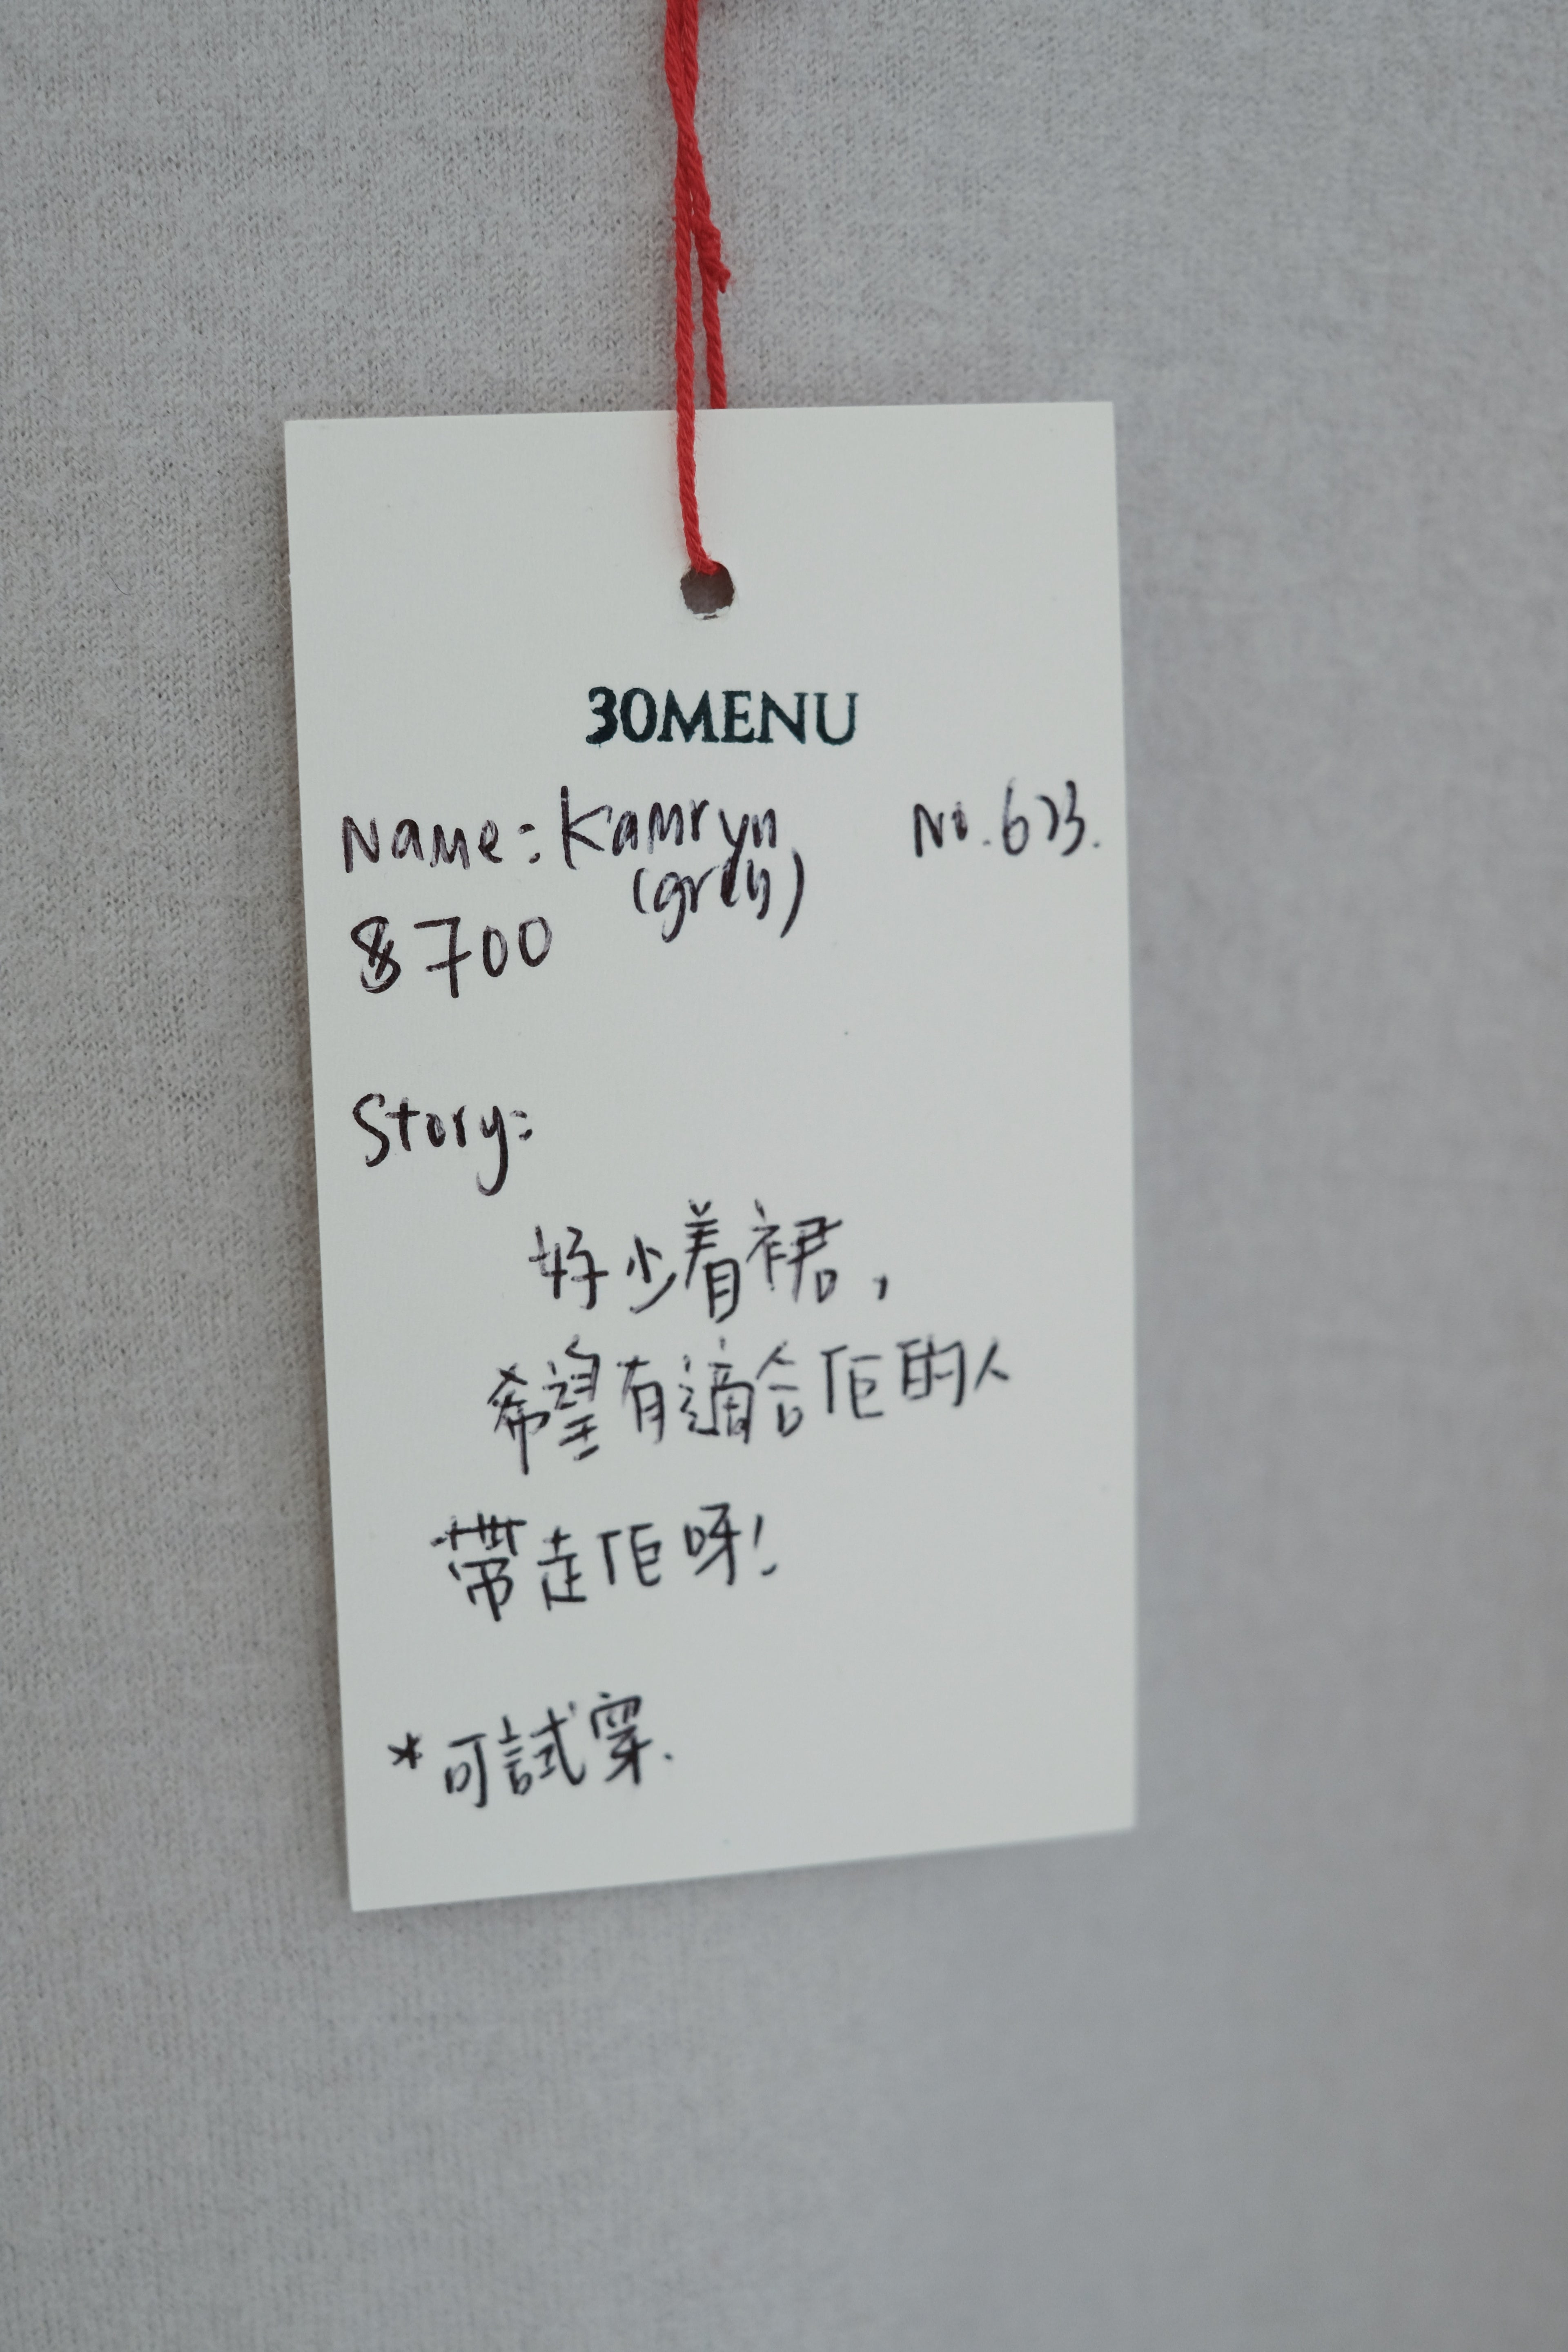 30MENU
Name: Kamryn No. 623.
(grey)
$700
Story:
好少着裙,
希望有適合佢的人
帶走佢呀!
*可試穿.